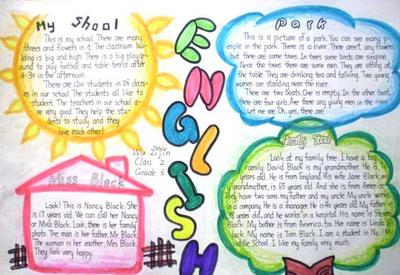 My Shool
This is my school. There are many
threes and flowers in it. The classroom buil
ding is big and high. There is a big play-
ground to play football and table tennis after
4:30 in the afternoon.
There are 1200 students in 26 classes
in our school. The students all like to
student. The teachers in our school a
very good. They help the stu-
dents to study and they
love each other!
Park
This is a picture of a park. You can see many
people in the park. There is a river. There aren't any flowers,
but there are some trees. In trees some birds are singing.
Near the trees there are some men. They are sitting at
the table. They are drinking tea and talking. Two young
women are standing near the river.
There are two Boats. One is empty. In the other boat,
there are four girls. Are there any young men in the river?
Let me see. Oh, yes, there are!
ENGLISH
Class 2
Grade 3
Miss Black
Look! This is Nancy Black. She
is 17 years old. We can call her Nancy
or Miss Black. Look, there is her family
photo. The man is her father, Mr Black.
The woman is her mother, Mrs Black.
They look very happy.
Family Tree
Look at my family tree. I have a big
family. David Black is my grandfather. He is
years old. He is from England. His wife Jane Black, my
grandmother, is 65 years old. And she is from America.
They have two sons, my father and my uncle. My uncle works
in a company. He is a manager. He is 40 years old. My father is
38 years old, and he works in a hospital. His name is Steven
Black. My mother is from America, too. Her name is Linda
Black. My name is Tom Black. I am a student in No. 14
Middle School. I like my family very much.